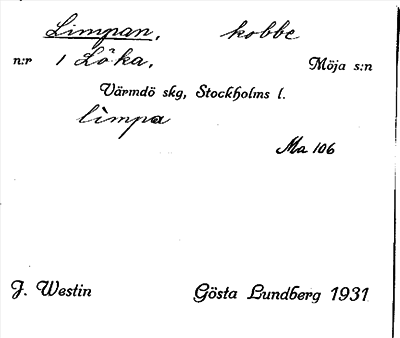 Limpan, kobbe
n:r 1 Löka, Möja s:n
Värmdö skg, Stockholms l.
lìmpa
Ma 106
J. Westin Gösta Lundberg 1931